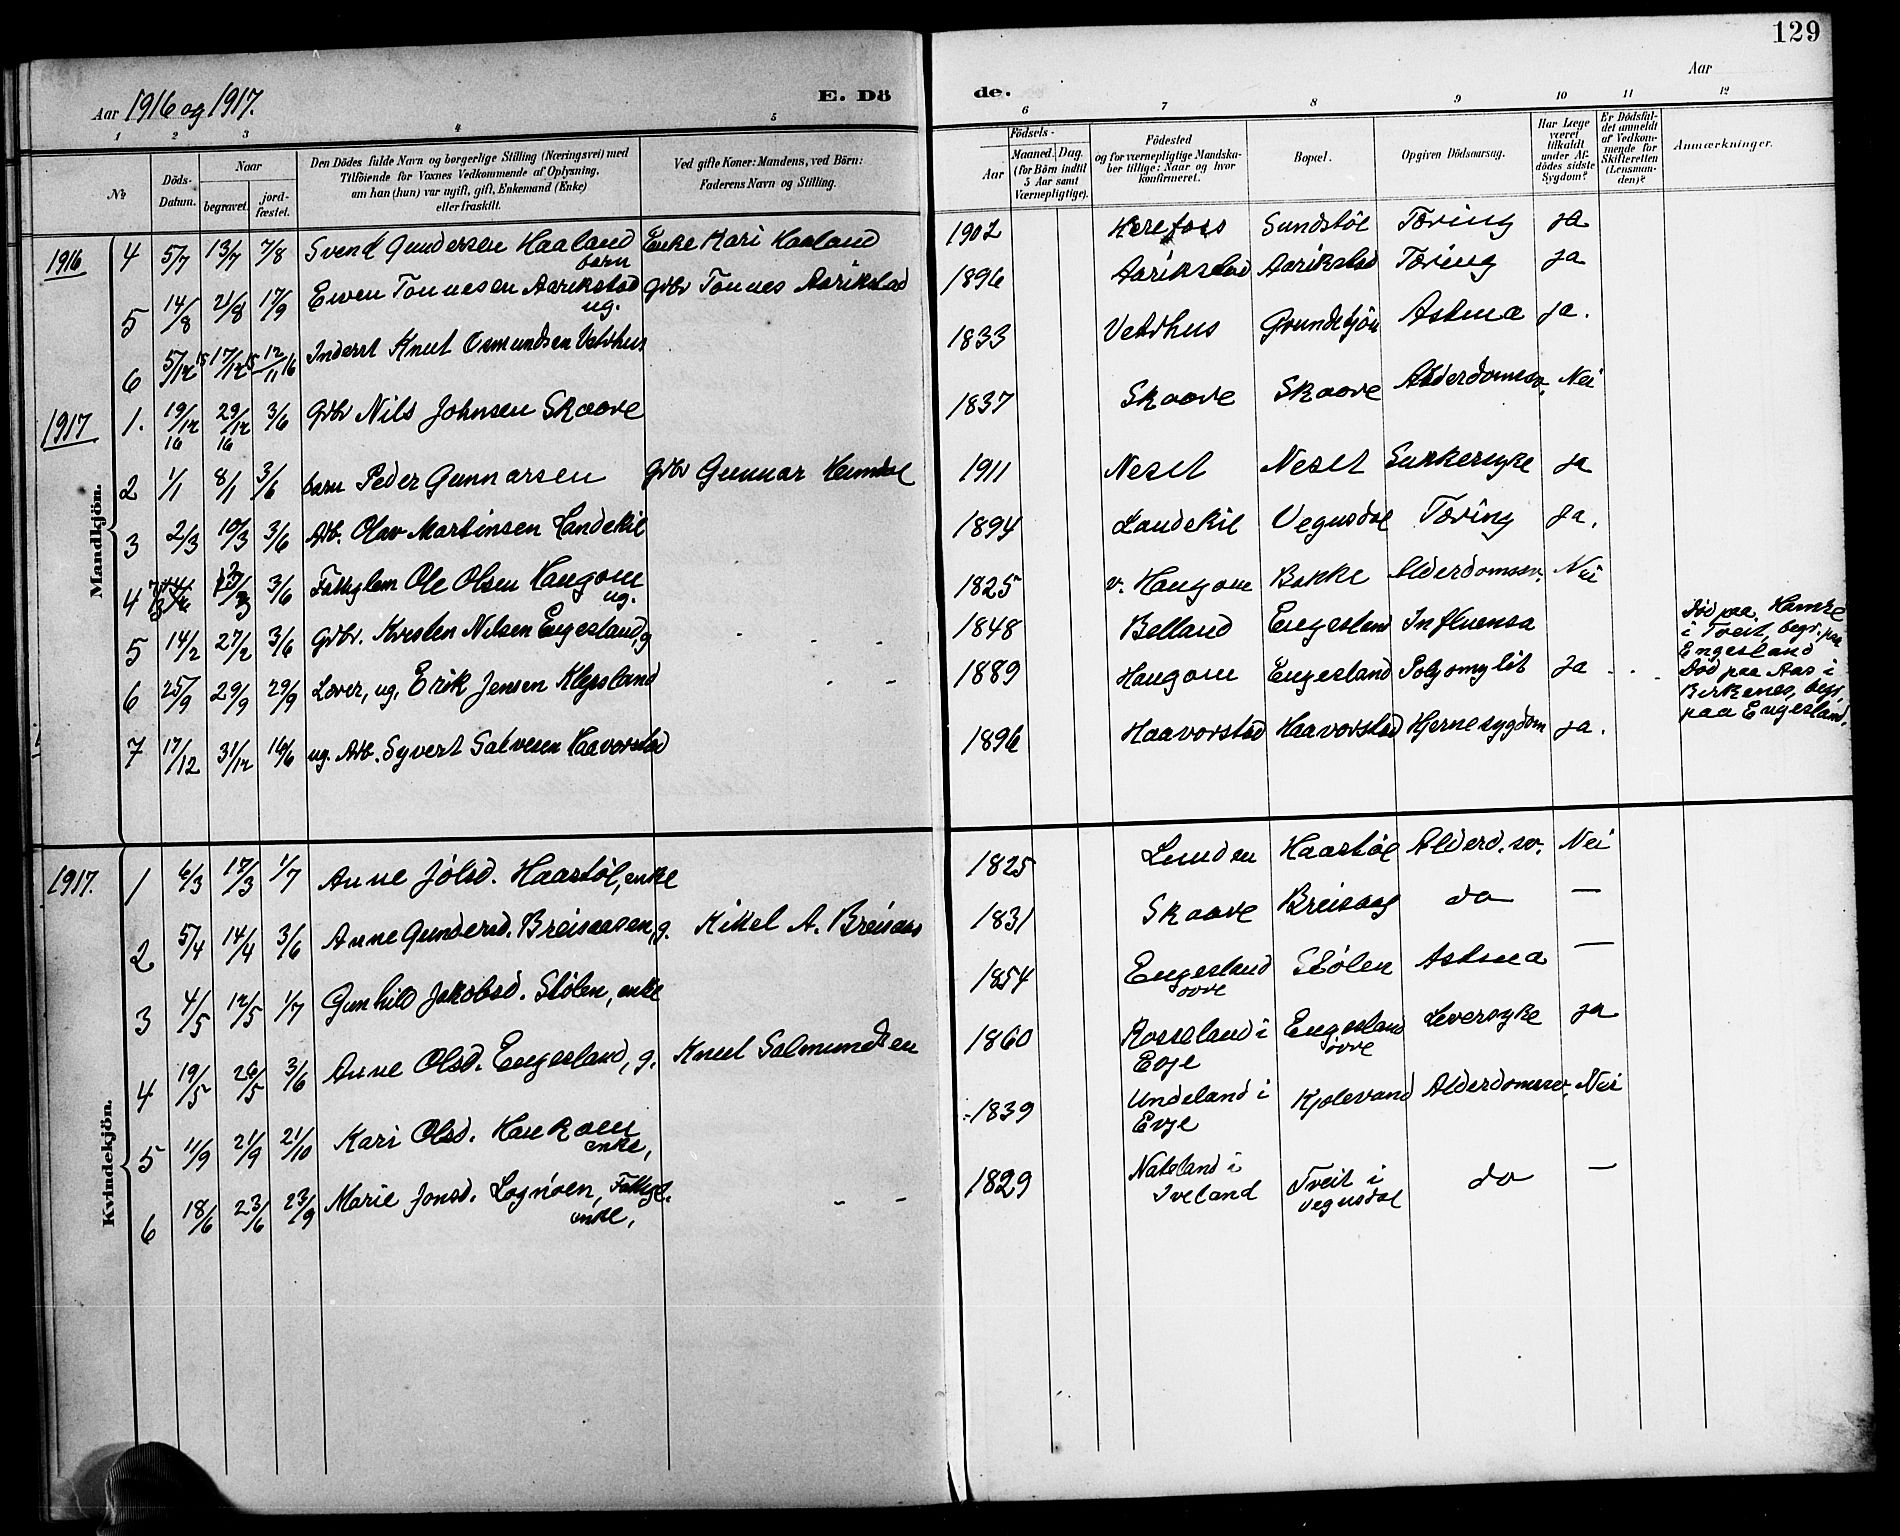 129
Aar 1916 og 1917.
E. Dö
de.
Aar
1 2 3 4 5 6 7 8 9 10 11 12
№
Döds-Datum.
Naar
begravet.
jord-fæstet.
Den Dödes fulde Navn og borgerlige Stilling (Næringsvei) med
Tilföiende for Voxnes Vedkommende af Oplysning,
om han (hun) var ugift, gift, Enkemand (Enke)
eller fraskilt.
Ved gifte Koner: Mandens, ved Börn:
Faderens Navn og Stilling.
Födsels-
Aar
Maaned. Dag.
(for Börn indtil
5 Aar samt
Værnepligtige).
Födested
og for værnepligtige Mandska-
ber tillige: Naar og hvor
konfirmeret.
Bopæl.
Opgiven Dödsaarsag.
Har Læge
været
tilkaldt
under Af-
dödes sidste
Sygdom?
Er Dödsfal-
det anmeldt
af Vedkom-
mende for
Skifteretten
(Lensman-
den)?
Anmærkninger.
Mandkjön.
1916 4 5/7 13/7 7/8 Svend Gundersen Haaland barn Enke Kari Haaland 1902 Herefoss Sundstøl Tæring ja
5 14/8 21/8 17/9 Even Tonnesen Aarikstad ug. Gbr Tonnes Aarikstad 1896 Aarikstad Aarikstad Tæring ja
6 5/12 15 17/12 15 12/11 16 Inderst Knut Osmundsen Vetrhus 1833 Vetrhus Grundetjøn Astma ja.
1917 1. 19/12 16 29/12 16 3/6 Gbr Nils Johnsen Skaare 1837 Skaare Skaare Alderdomssv. Nei
2 1/1 8/1 3/6 barn Peder Gunnarsen Gbr Gunnar Heimdal 1911 Neset Neset Sukkersyke ja
3 2/3 10/3 3/6 Arb. Olav Martinsen Landekil 1894 Landekil Vegusdal Tæring ja.
4 3/6 Fattiglem Ole Olsen Haugom ug. 1825 v. Haugom Bakke Alderdomssv. Nei
5 14/2 27/2 3/6 Gbr. Kristen Nilsen Engesland, g 1848 Belland Engesland Influensa Død paa Hamre
i Tveit, begr. paa
Engesland
6 25/9 29/9 29/9 Lærer, ug. Erik Jensen Klepsland 1889 Haugom Engesland Polyomylit ja Død paa Aas i
Birkenes, begr.
paa Engesland.
7 17/12 31/12 16/6 ug. Arb. Syvert Salvesen Haavorstad 1896 Haavorstad Haavorstad Hjernesygdom ja.
Kvindekjön.
1917. 1 6/3 17/3 1/7 Anne Jølsd. Haastøl, enke 1825 Lunden Haastøl Alderd. sv. Nei
2 5/4 14/4 3/6 Anne Gundersd. Breisaasen, g. Mikel A. Breisaas 1831 Skaare Breisaas do —
3 4/5 12/5 1/7 Gunhild Jakobsd. Stølen, enke 1854 Engesland øvre Stølen Astma —
4 19/5 26/5 3/6 Anne Olsd. Engesland, g. Knut Salmundsen 1860 Rosseland i Evje Engesland øvre Leversyke ja
5 11/9 21/9 21/10 Kari Olsd. Haukom enke, 1839 Undeland i Evje Kjølevand Alderdomssv. Nei
6 18/6 23/6 23/9 Marie Jonsd. Lognøen, Fattigl. enke, 1829 Nateland i Iveland Tveit i Vegusdal do —